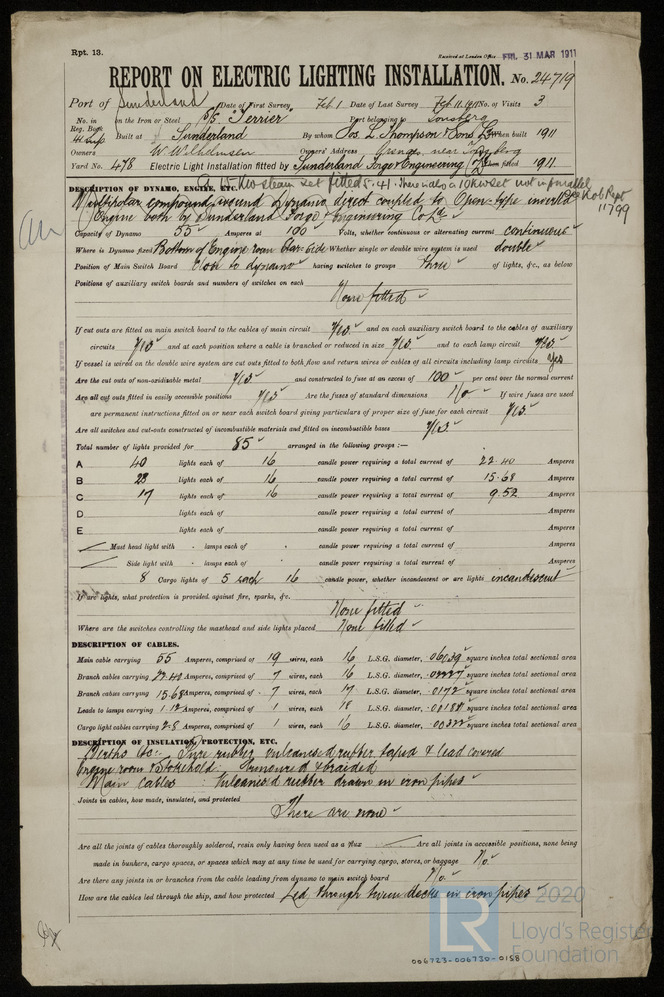 Rpt. 13.
Received at London Office FRI. 31 MAR 1911
REPORT ON ELECTRIC LIGHTING INSTALLATION. No. 24719
Port of Sunderland Date of First Survey Feb 1 Date of Last Survey Feb 11. 1911 No. of Visits 3
No. in Reg. Book on the Iron or Steel S/S Terrier Port belonging to Tonsberg
Built at Sunderland By whom Jos. L. Thompson & Sons Ld When built 1911
Owners W. Wilhelmsen Owners' Address near Tonsberg
Yard No. 478 Electric Light Installation fitted by Sunderland Forge & Engineering Co Ld When fitted 1911
DESCRIPTION OF DYNAMO, ENGINE, ETC.
A 15 Kw steam set fitted 5.41. There is also a 10 Kw set not in parallel
See Kob Rept 11799
Multipolar compound wound dynamo direct coupled to Open type inverted
Engine both by Sunderland Forge & Engineering Co Ld
Capacity of Dynamo 55 Amperes at 100 Volts, whether continuous or alternating current continuous
Where is Dynamo fixed Bottom of Engine room Star. Side Whether single or double wire system is used double
Position of Main Switch Board Close to dynamo having switches to groups three of lights, &c., as below
Positions of auxiliary switch boards and numbers of switches on each
None fitted
If cut outs are fitted on main switch board to the cables of main circuit Yes and on each auxiliary switch board to the cables of auxiliary
circuits Yes and at each position where a cable is branched or reduced in size Yes and to each lamp circuit Yes
If vessel is wired on the double wire system are cut outs fitted to both flow and return wires or cables of all circuits including lamp circuits Yes
Are the cut outs of non-oxidisable metal Yes and constructed to fuse at an excess of 100 per cent over the normal current
Are all cut outs fitted in easily accessible positions Yes Are the fuses of standard dimensions No If wire fuses are used
are permanent instructions fitted on or near each switch board giving particulars of proper size of fuse for each circuit Yes
Are all switches and cut-outs constructed of incombustible materials and fitted on incombustible bases Yes
Total number of lights provided for 85 arranged in the following groups :—
A 40 lights each of 16 candle power requiring a total current of 22.40 Amperes
B 28 lights each of 16 candle power requiring a total current of 15.68 Amperes
C 17 lights each of 16 candle power requiring a total current of 9.52 Amperes
D lights each of candle power requiring a total current of Amperes
E lights each of candle power requiring a total current of Amperes
Mast head light with lamps each of candle power requiring a total current of Amperes
Side light with lamps each of candle power requiring a total current of Amperes
8 Cargo lights of 5 each 16 candle power, whether incandescent or arc lights incandescent
If arc lights, what protection is provided against fire, sparks, &c.
None fitted
Where are the switches controlling the masthead and side lights placed None fitted
DESCRIPTION OF CABLES.
Main cable carrying 55 Amperes, comprised of 19 wires, each 16 L.S.G. diameter, .06139 square inches total sectional area
Branch cables carrying 22.40 Amperes, comprised of 7 wires, each 16 L.S.G. diameter, .02227 square inches total sectional area
Branch cables carrying 15.68 Amperes, comprised of 7 wires, each 17 L.S.G. diameter, .0172 square inches total sectional area
Leads to lamps carrying 1.12 Amperes, comprised of 1 wires, each 18 L.S.G. diameter, .00184 square inches total sectional area
Cargo light cables carrying 2.8 Amperes, comprised of 1 wires, each 16 L.S.G. diameter, .00322 square inches total sectional area
DESCRIPTION OF INSULATION, PROTECTION, ETC.
Berths &c:- Pure rubber vulcanised rubber taped & lead covered
Engine room & Stokehold: Armoured & braided
Main cables : Vulcanised rubber drawn in iron pipes
Joints in cables, how made, insulated, and protected
There are none
Are all the joints of cables thoroughly soldered, resin only having been used as a flux Are all joints in accessible positions, none being
made in bunkers, cargo spaces, or spaces which may at any time be used for carrying cargo, stores, or baggage No.
Are there any joints in or branches from the cable leading from dynamo to main switch board No.
How are the cables led through the ship, and how protected Led through tween decks in iron pipes
LR © 2020
Lloyd's Register
Foundation
006723-006730-0158